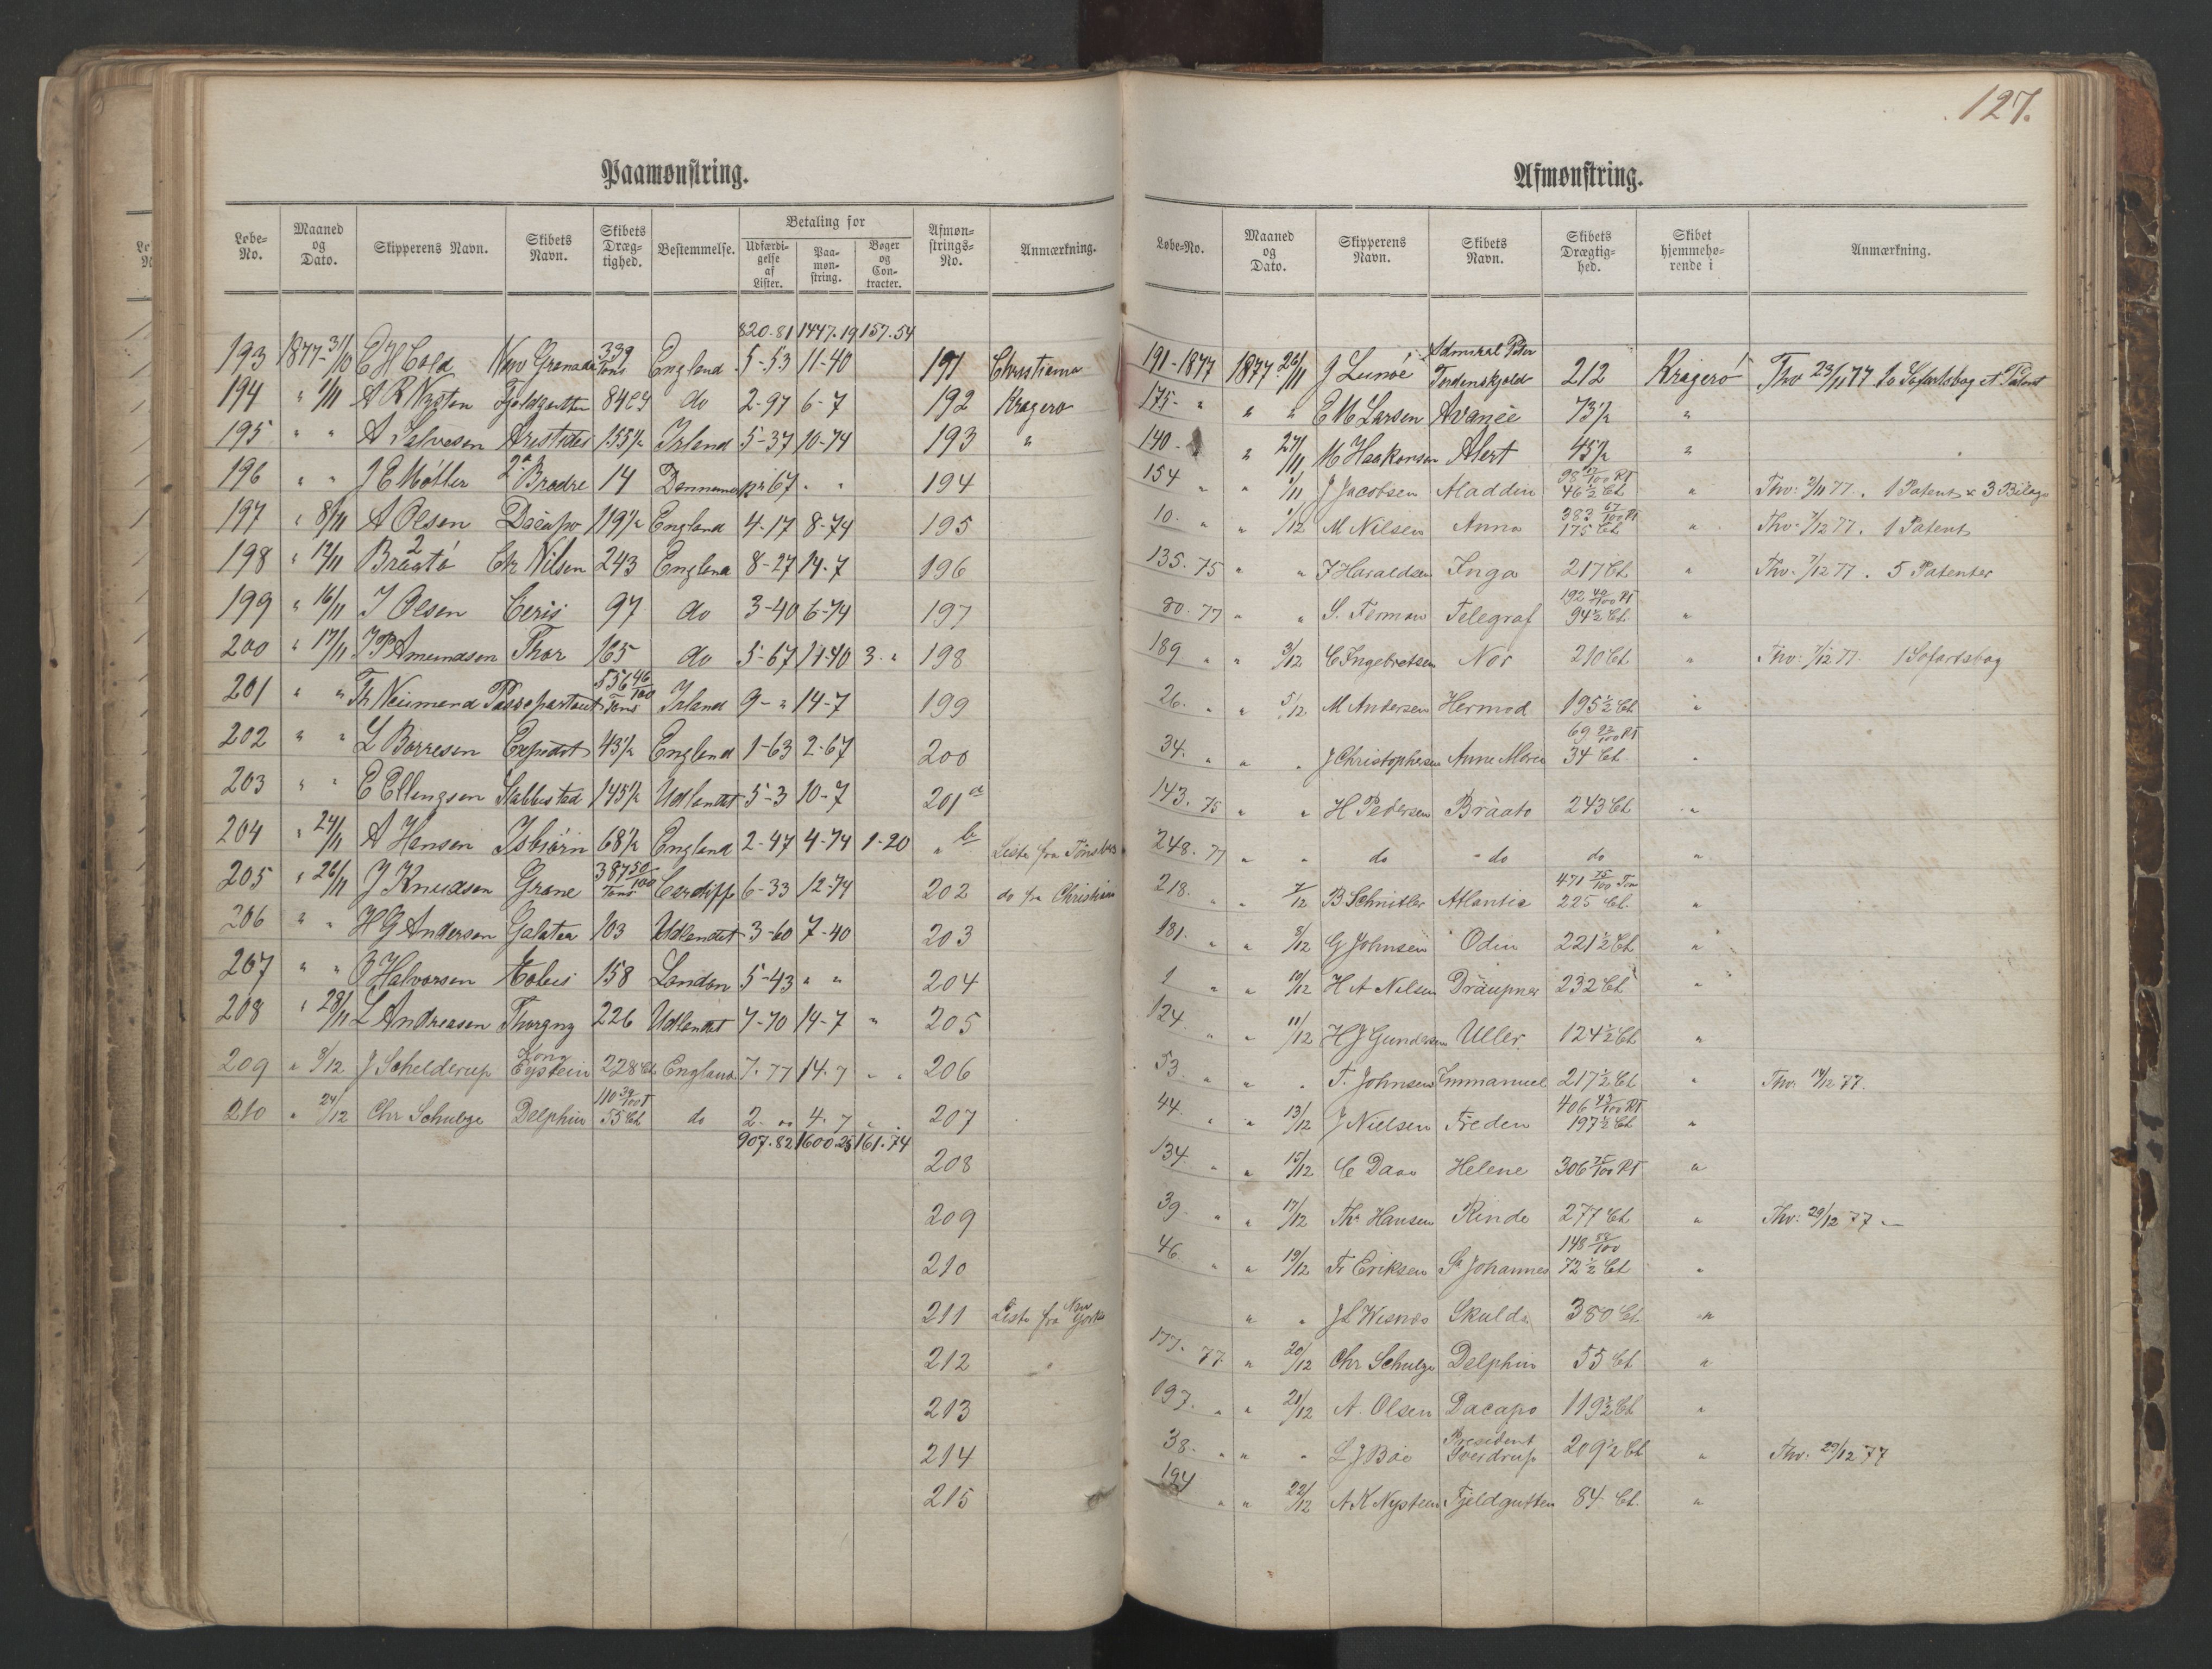 127.
Paamønstring.
Løbe-No. Maaned og Dato. Skipperens Navn. Skibets Navn. Skibets Drægtighed. Bestemmelse. Betaling for Udfærdigelse af Lister. Paamønstring. Bøger og Contracter. Afmønstrings-No. Anmærkning.
820.81 1447.19 157.54
193 1877 31/10 C H Cold New Granada 339 Tons England 5-53 11-40 191 Christiania
194 " 1/11 A R Nysten Fjeldgutten 84 Cl do 2-97 6-7 192 Kragerø
195 " " A Salvesen Aristides 155½ Irland 5-37 10-74 193 "
196 " " J E Møller 2de Brødre 14 67 " " 194
197 " 8/11 A Olsen Dacapo 119½ England 4-17 8-74 195
198 " 12/11 Braatø 2 Chr Nilsen 243 England 8-27 14-7 196
199 " 16/11 J Olsen Ceris 97 do 3-40 6-74 197
200 " 17/11 J P Amundsen Thor 165 do 5-67 11-40 3 " 198
201 " " Th Neumand Passepartout 556 46/100 Tons Irland 9-" 14-7 199
202 " " L Borresen Expedit 43½ England 1-63 2-67 200
203 " " E Ellengsen Stabbestad 145½ Udlandet 5-3 10-7 201 a
204 " 24/11 A Hansen Isbjørn 68½ England 2-47 4-74 1-20 " b Liste fra Tönsberg
205 " 26/11 J Knudsen Grane 387 50/100 Tons Cardiff 6-33 12-74 202 do fra Christian
206 " " H G Andersen Galatea 103 Udlandet 3-60 7-40 203
207 " " O Halvorsen Æolus 158 London 5-43 " " 204
208 " 28/11 L Andreasen Thorgny 226 Udlandet 7-70 14-7 " 205
209 " 3/12 J Schelderup Kong Eystein 228 Cl England 7.77 14.7 " " 206
210 " 24/12 Chr Schulze Delphin 110 39/100 T 55 Cl do 2. " 4.7 " . 207
907.82 1600.25 161.74
208
209
210
211 Liste fra New York
212
213
214
215
Afmønstring.
Løbe-No. Maaned og Dato. Skipperens Navn. Skibets Navn. Skibets Drægtighed. Skibet hjemmehørende i Anmærkning.
191-1877 1877 26/11 J Lunøe Admiral Peter Tordenskjold 212 Kragerø Thv 23/11 77 10 Søfartsbog 1 Patent
175- " " " E M Larsen Avance 73½ "
140- " 27/11 M Haakonsen Alert 45½ "
154 " " /11 J Jacobsen Aladdin 98 /100 RT 46½ Cl " Thv: /11 77. 1 Patent & 3 Bilage
10. " " 1/12 M Nilsen Anna 383 67/100 RT 175 Cl " Thv: 7/12 77. 1 Patent
135. 75 " " J Haraldsen Inga 217 Cl " Thv. 7/12 77. 5 Patenter
80. 77 " " S. Ferman Telegraf 192 40/100 RT 94½ Cl "
189 " " 3/12 C Ingebretsen Nor 210 Cl " Thv: 7/12 77. 1 Søfartsbog
26. " " 5/12 M Andersen Hermod 195½ Cl "
34. " " " J Christophersen Anne Marie 69 22/100 RT 34 Cl "
143. 75 " " H Pedersen Bräato 243 Cl "
248. 77 " " do do do "
218. " " 7/12 B Schnitler Atlantic 471 75/100 Ton 225 Cl. "
181. " " 8/12 G Johnsen Odin 221½ Cl "
1 " " 10/12 H A Nilsen Dräupner 232 Cl "
124. " " 11/12 H J Gundersen Uller 124½ Cl "
53. " " " T. Johnsen Immanuel 217½ Cl " Thv 14/12 77.
44. " " 13/12 J Nielsen Freden 406 43/100 RT 197½ Cl "
134. " " 15/12 C Daae Helene 306 75/100 RT "
39. " " 17/12 Ths Hansen Rinde 277 Cl " Thv: 29/12 77
46. " " 19/12 Fr Eriksen St Johannes 148 58/100 72½ Cl "
" " J L Wisnæs Skulda 380 Cl "
177. 77. " 20/12 Chr Schulze Delphin 55 Cl "
197. " " 21/12 A. Olsen Dacapo 119½ Cl "
38. " " " L J Böe President Sverdrup 209½ Cl " Thv: 29/12 77
194 " " 22/12 A K Nysteen Fjeldgutten 84 Cl. "